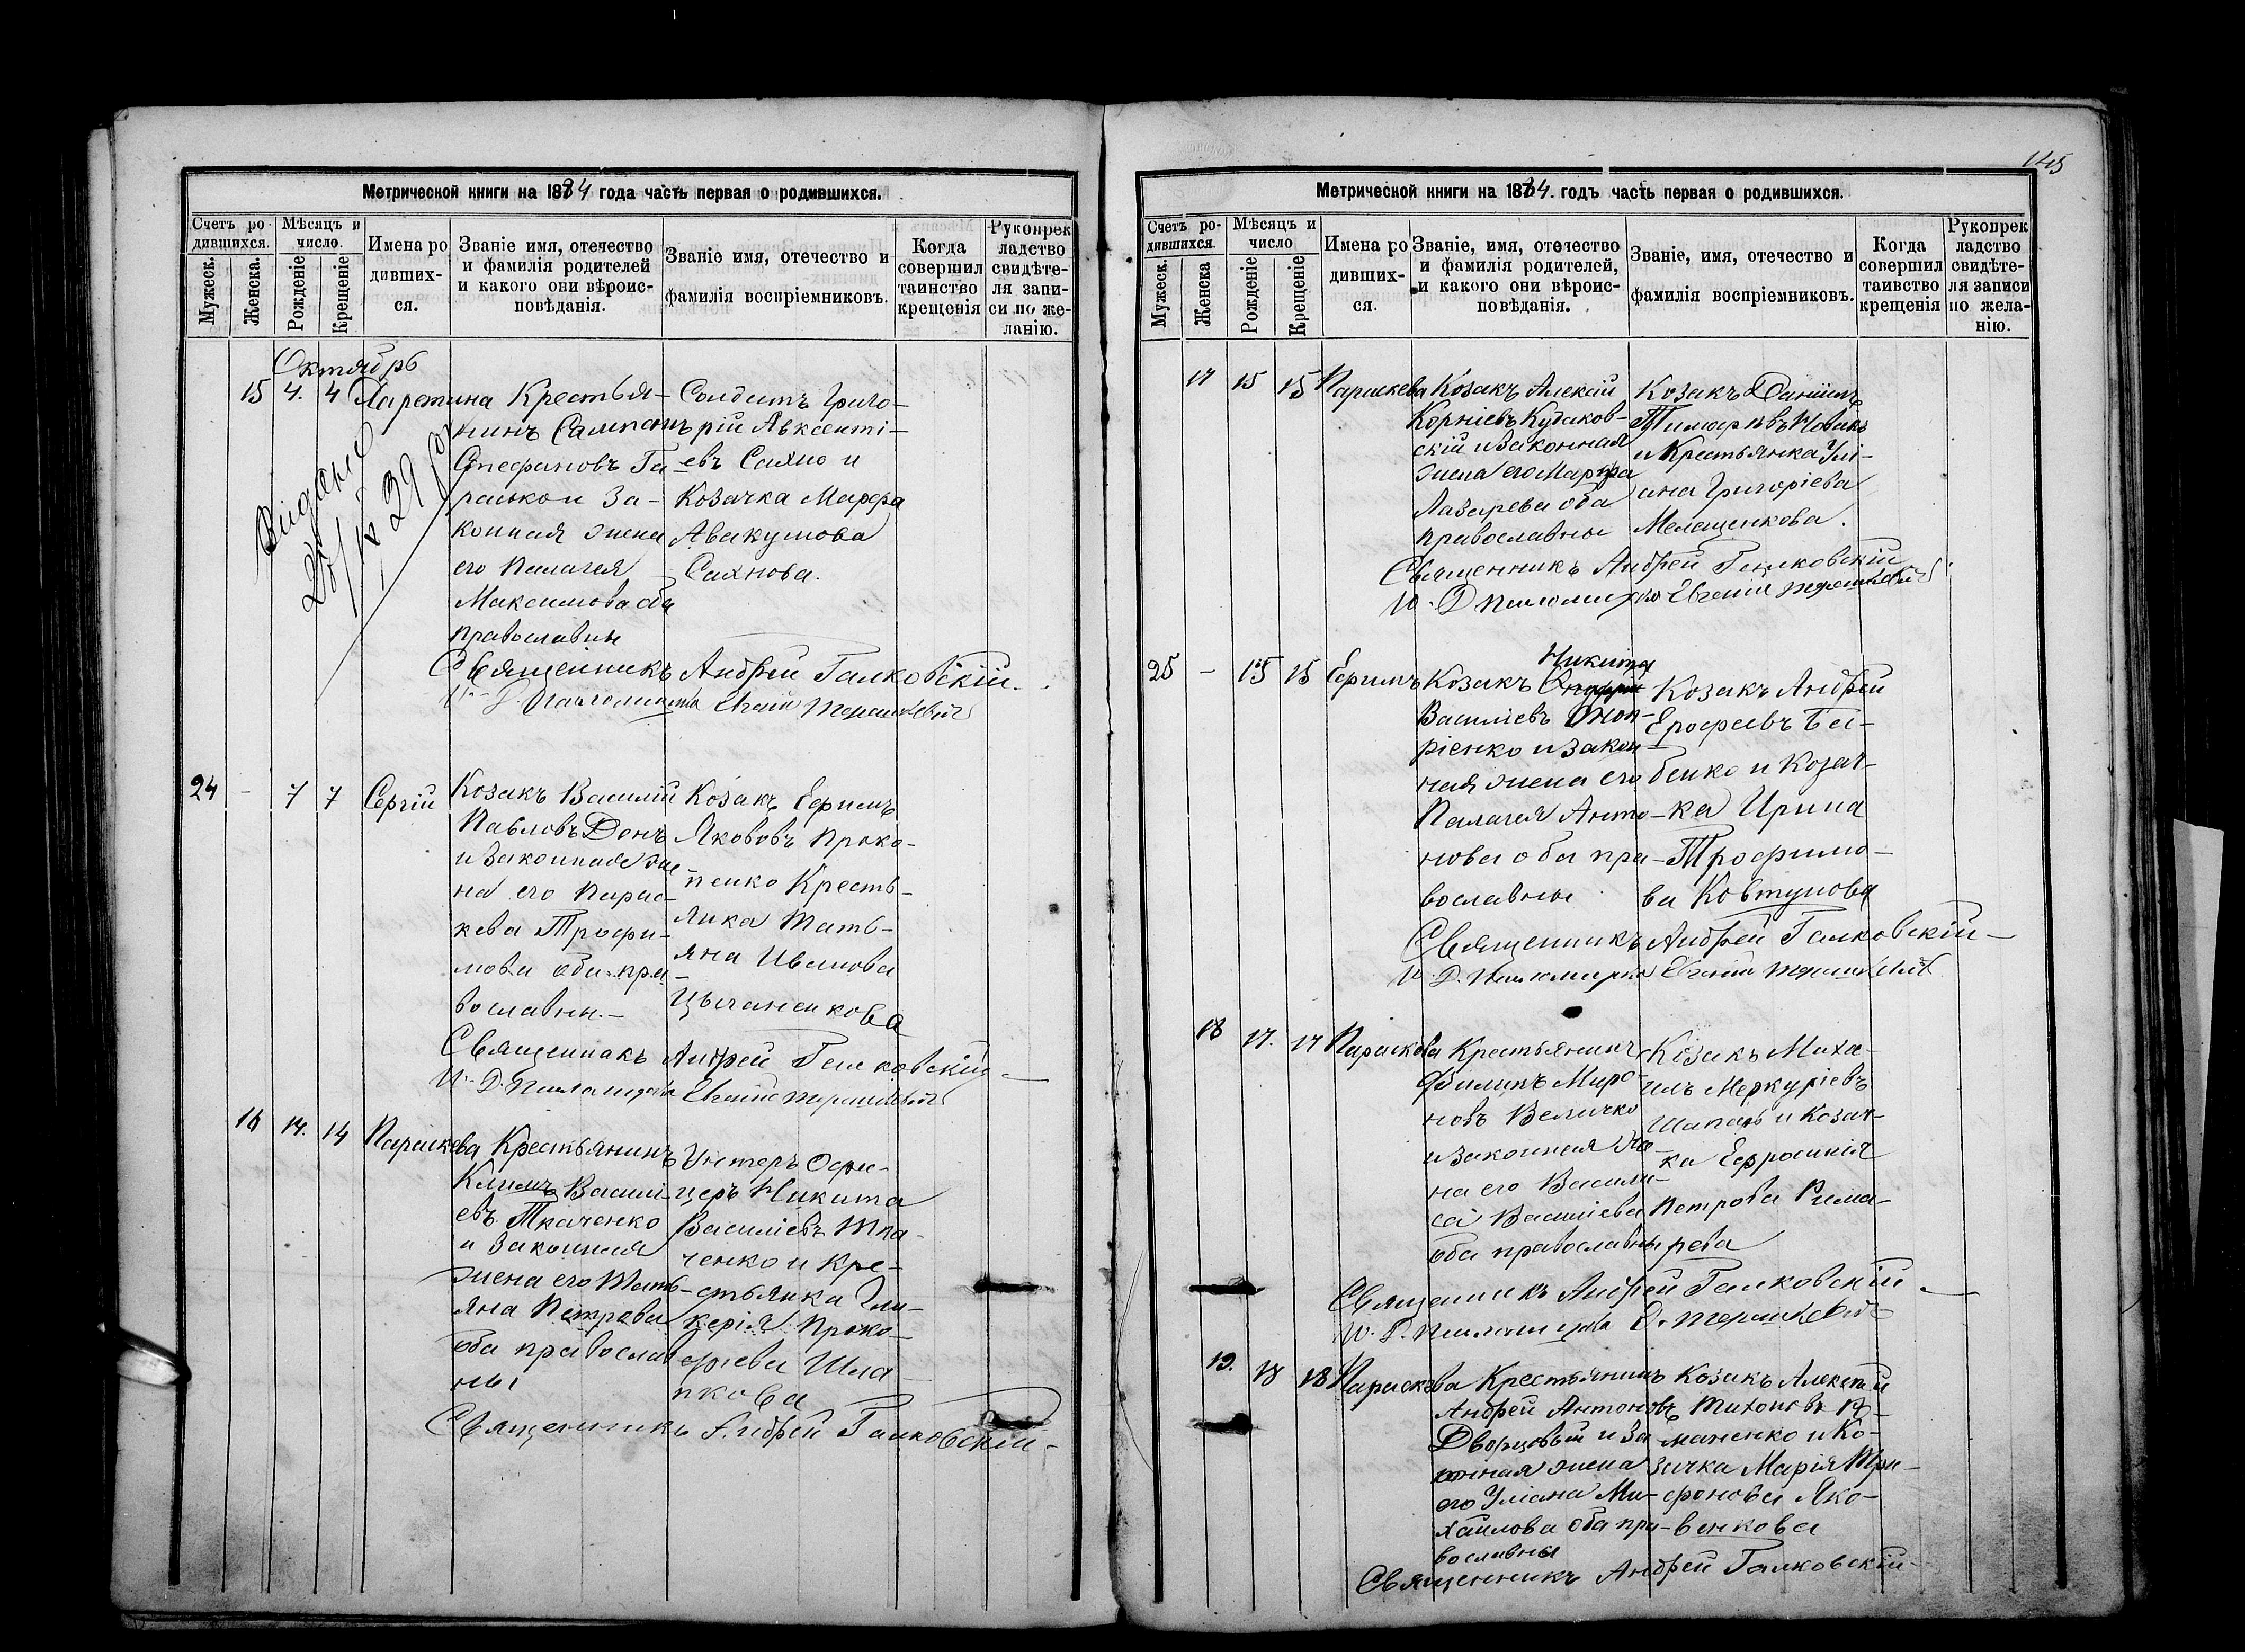 Метрической книги на 1884 года часть первая о родившихся.
Счетъ ро-
дившихся.
Мѣсяцъ и
число.
Мужеск.
Женска.
Рожденіе
Крещеніе
Имена ро
дивших-
ся.
Званіе имя, отечество
и фамилія родителей
и какого они вѣроис-
повѣданія.
Званіе имя, отечество и
фамилія воспріемниковъ.
Когда
совершил
таинство
крещенія
Рукопрек
ладство
свидѣте-
ля запи-
си по же-
ланію.
Октябрь
15 4. 4 Харетина Крестья-
нинъ Сампсонъ
Стефановъ Га
раською и за-
конная жена
его Палагея
Максимова оба
православны
Солдатъ Григо-
рій Авксенті-
евъ Сахно и
Козачка Марфа
Авакумова
Сахнова.
Священникъ Андрей Галковскій
24 - 7 7 Сергій
Козакъ Василій
Павловъ Донъ
и законная же-
на его Парас-
кева Трофи-
мова оба пра-
вославны.-
Козакъ Ефимъ
Яковъ Проко-
пенко Кресть-
янка Тать-
яна Иванова
Цыганенкова
Священникъ Андрей Галковскій
16 14. 14 Параскева Крестьянинъ
Климъ Васили-
евъ Ткаченко
и законная
жена его Тать-
яна Петрова
оба православ
ны
Унтеръ Офи-
церъ Никита
Василіевъ Тка-
ченко и Кре-
стьянка Гли-
керія Проко-
фіева Шла-
пкова
Священникъ Андрей Галковскій-
145
Метрической книги на 1884. годъ часть первая о родившихся.
Счетъ ро-
дившихся.
Мѣсяцъ и
число
Мужеск.
Женска
Рожденіе
Крещеніе
Имена ро
дивших-
ся.
Званіе, имя, отечество
и фамилія родителей,
и какого они вѣроис-
повѣданія.
Званіе, имя, отечество и
фамилія воспріемниковъ.
Когда
совершил
таивство
крещенія
Рукопрек
ладство
свидѣте-
ля записи
по жела-
нію.
17 15 15 Параскева Козакъ Алексій
Корніевъ Кутаков-
скій и законная
жена его Марфа
Лазарева оба
православны
Козакъ Даніилъ
Новакъ
и Крестьянка Улі-
ана Григоріева
Мелещенкова.
Священникъ Андрей Галковскій
25 - 15 15 Ефимъ Козакъ Никита
Василіевъ Оноп-
ріенко и закон-
ная жена его
Палагея Анто-
нова оба пра-
вославны
Козакъ Андрей
Ерофеевъ Ба-
бенко и Козач-
ка Ирина
Трофимо-
ва Ковтунова
Священникъ Андрей Галковскій-
18 17. 17 Параскева Крестьянинъ
Филипъ Миро-
новъ Величко
и законная же-
на его Васили-
са Василіева
оба православны
Козакъ Миха-
илъ Меркуріевъ
Шапарь и Козач-
ка Ефросинія
Петрова Рима-
рева
Священникъ Андрей Галковскій
19. 18 18 Параскева Крестьянинъ
Андрей Антоновъ
Дворцовый и за
конная жена
его Уліана Ми-
хаилова оба пра-
вославны
Козакъ Алексѣй
Тихоновъ
маненко и Ко-
зачка Марія Три-
фонова Яко-
венкова
Священникъ Андрей Галковскій-